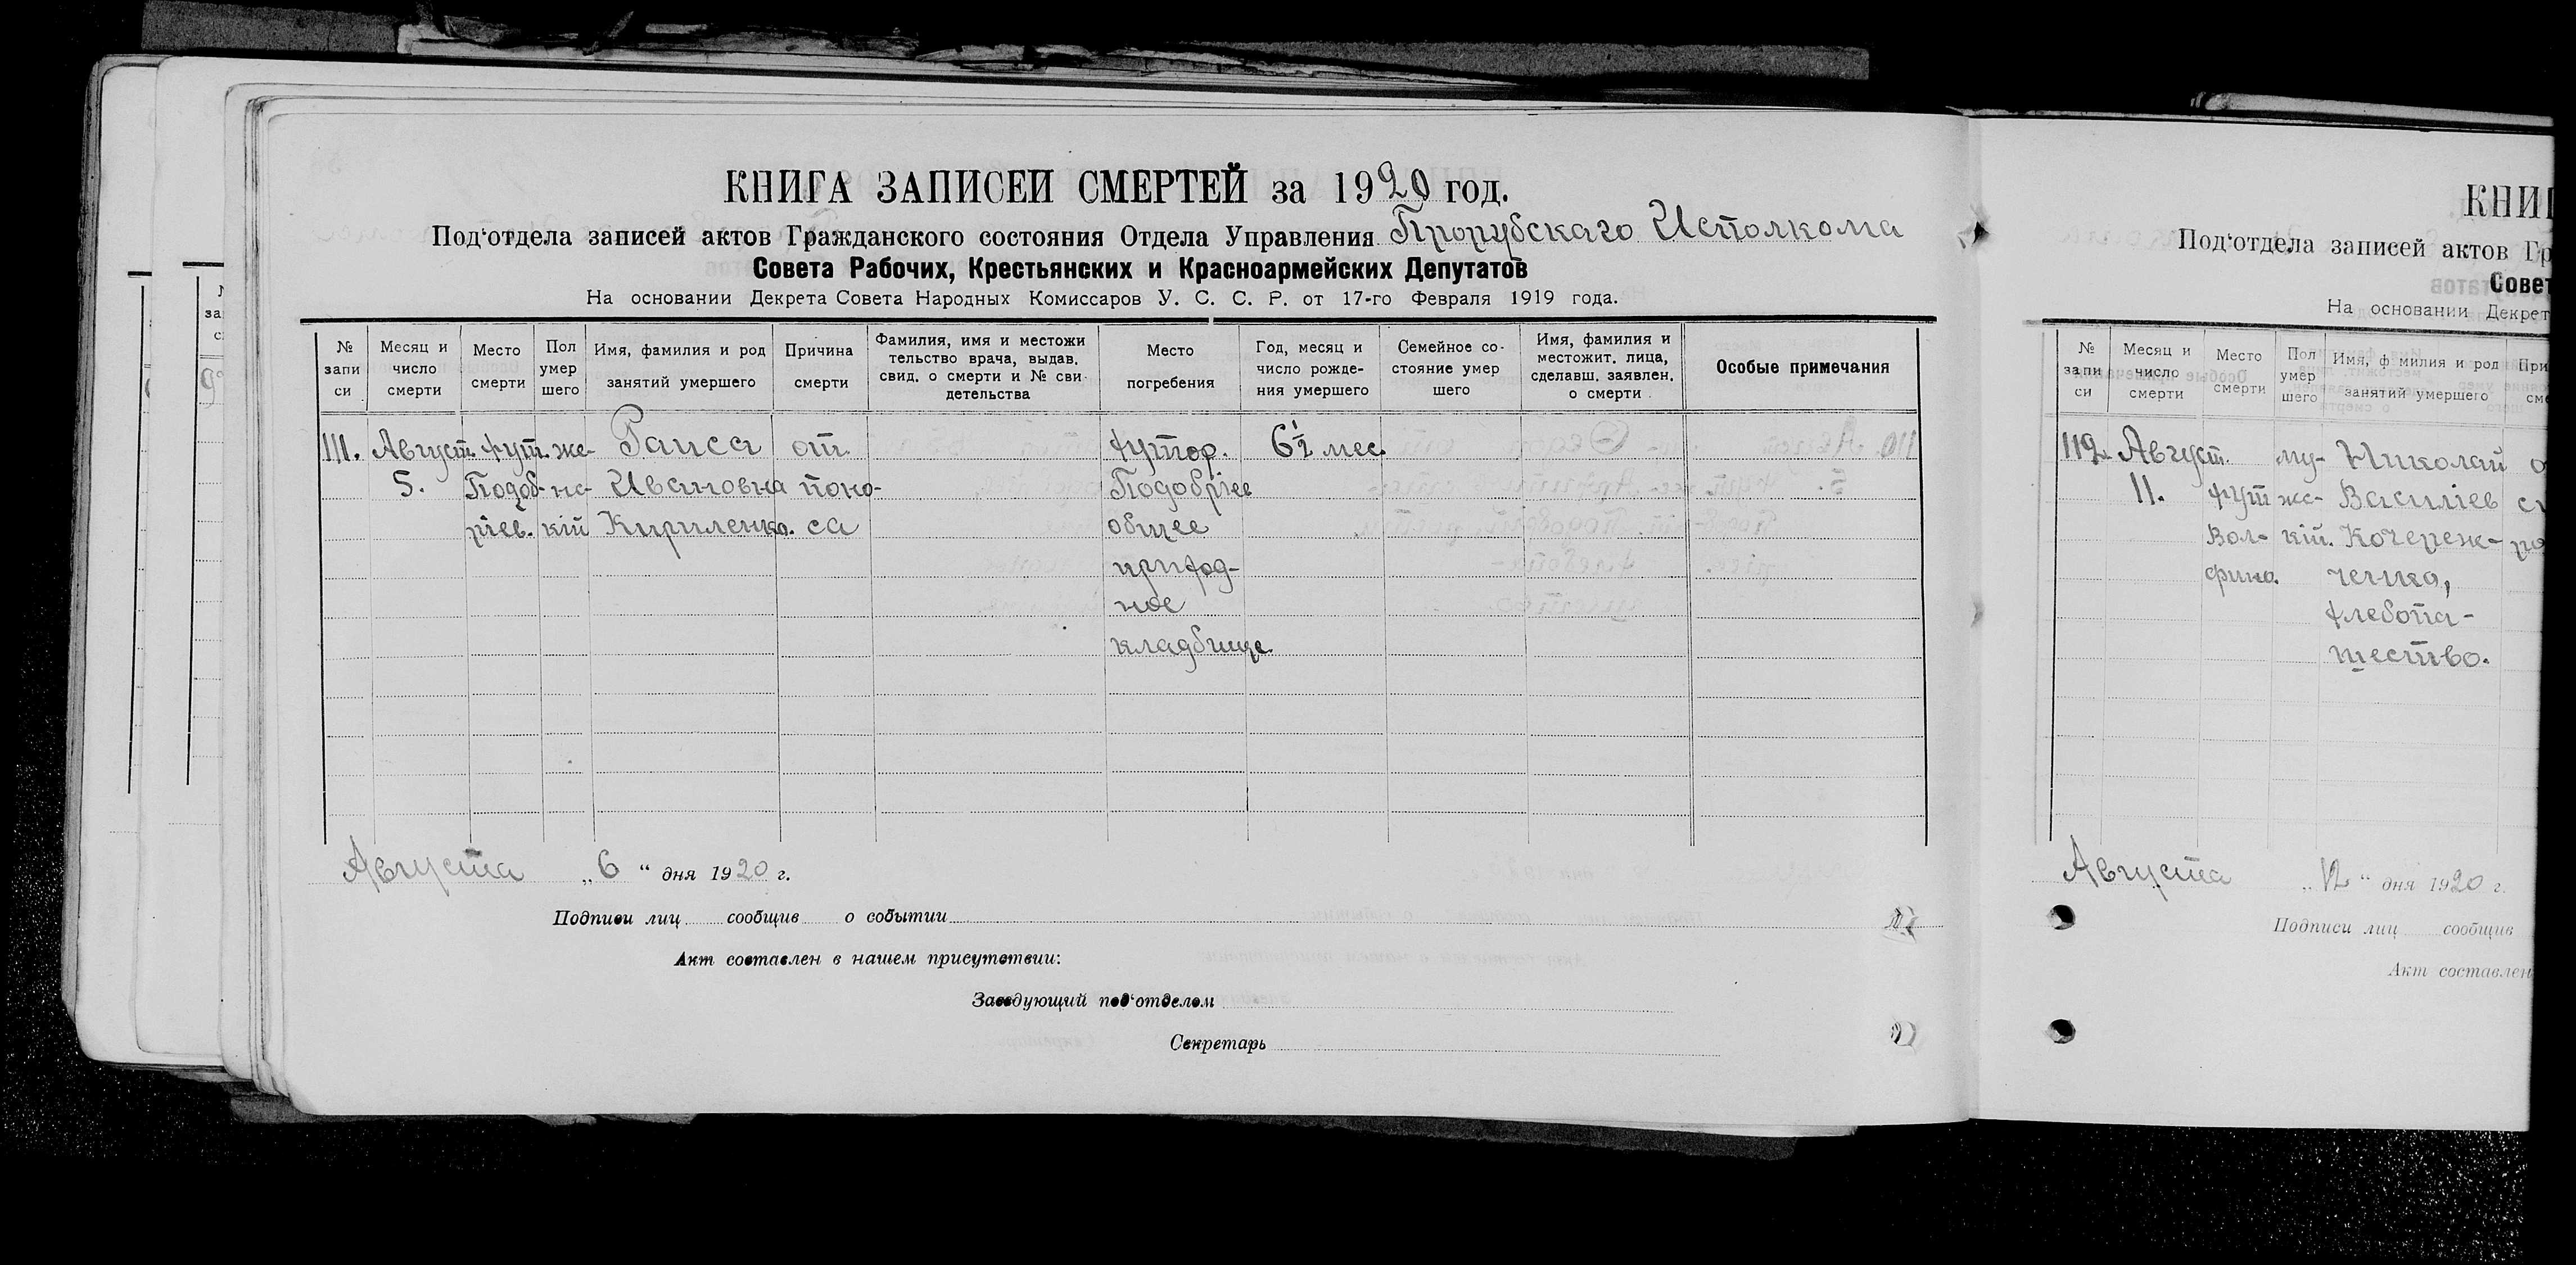 КНИГА ЗАПИСЕЙ СМЕРТЕЙ за 1920 год.
Под‘отдела записей актов Гражданского состояния Отдела Управления Прорубскаго Исполкома
Совета Рабочих, Крестьянских и Красноармейских Депутатов
На основании Декрета Совета Народных Комиссаров У. С. С. Р. от 17-го Февраля 1919 года.
№ запи си
Месяц и число смерти
Место смерти
Пол умер шего
Имя, фамилия и род занятий умершего
Причина смерти
Фамилия, имя и местожи тельство врача, выдав. свид. о смерти и № сви- детельства
Место погребения
Год, месяц и число рожде- ния умершего
Семейное со- стояние умер шего
Имя, фамилия и местожит. лица, сделавш. заявлен. о смерти
Особые примечания
111. Август. хут. же- Раиса от хутор. 6½ мес.
5. Подоб- нс- Ивановна поно- Подобріев
ріев. кій Кириленко. са общее
приход-
ное
кладбище.
Августа „6“ дня 1920 г.
Подписи лиц сообщив о событии
Акт составлен в нашем присутствии:
Заведующий под‘отделом
Секретарь
КНИГ
Под‘отдела записей актов Гр
Совет
На основании Декрет
№ запи си
Месяц и число смерти
Место смерти
Пол умер шего
Имя, ф милия и род занятий умершего
При см
112. Август. му- Николай о
11. хут жс- Василіев
Вол- кій. Кочереж-
фина. ченко,
хлебопа-
шество.
Августа „12“ дня 1920 г.
Подписи лиц сообщив
Акт составлен